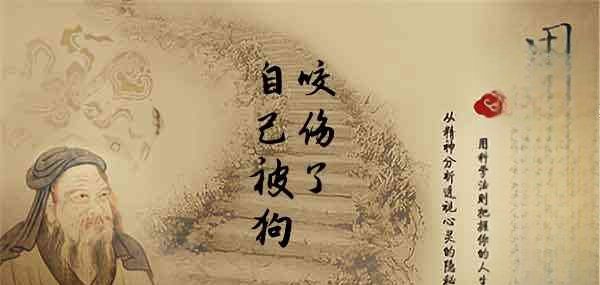 自己被狗
咬伤了
从精神分析透视心灵的隐秘
用科学法则把握你的人生